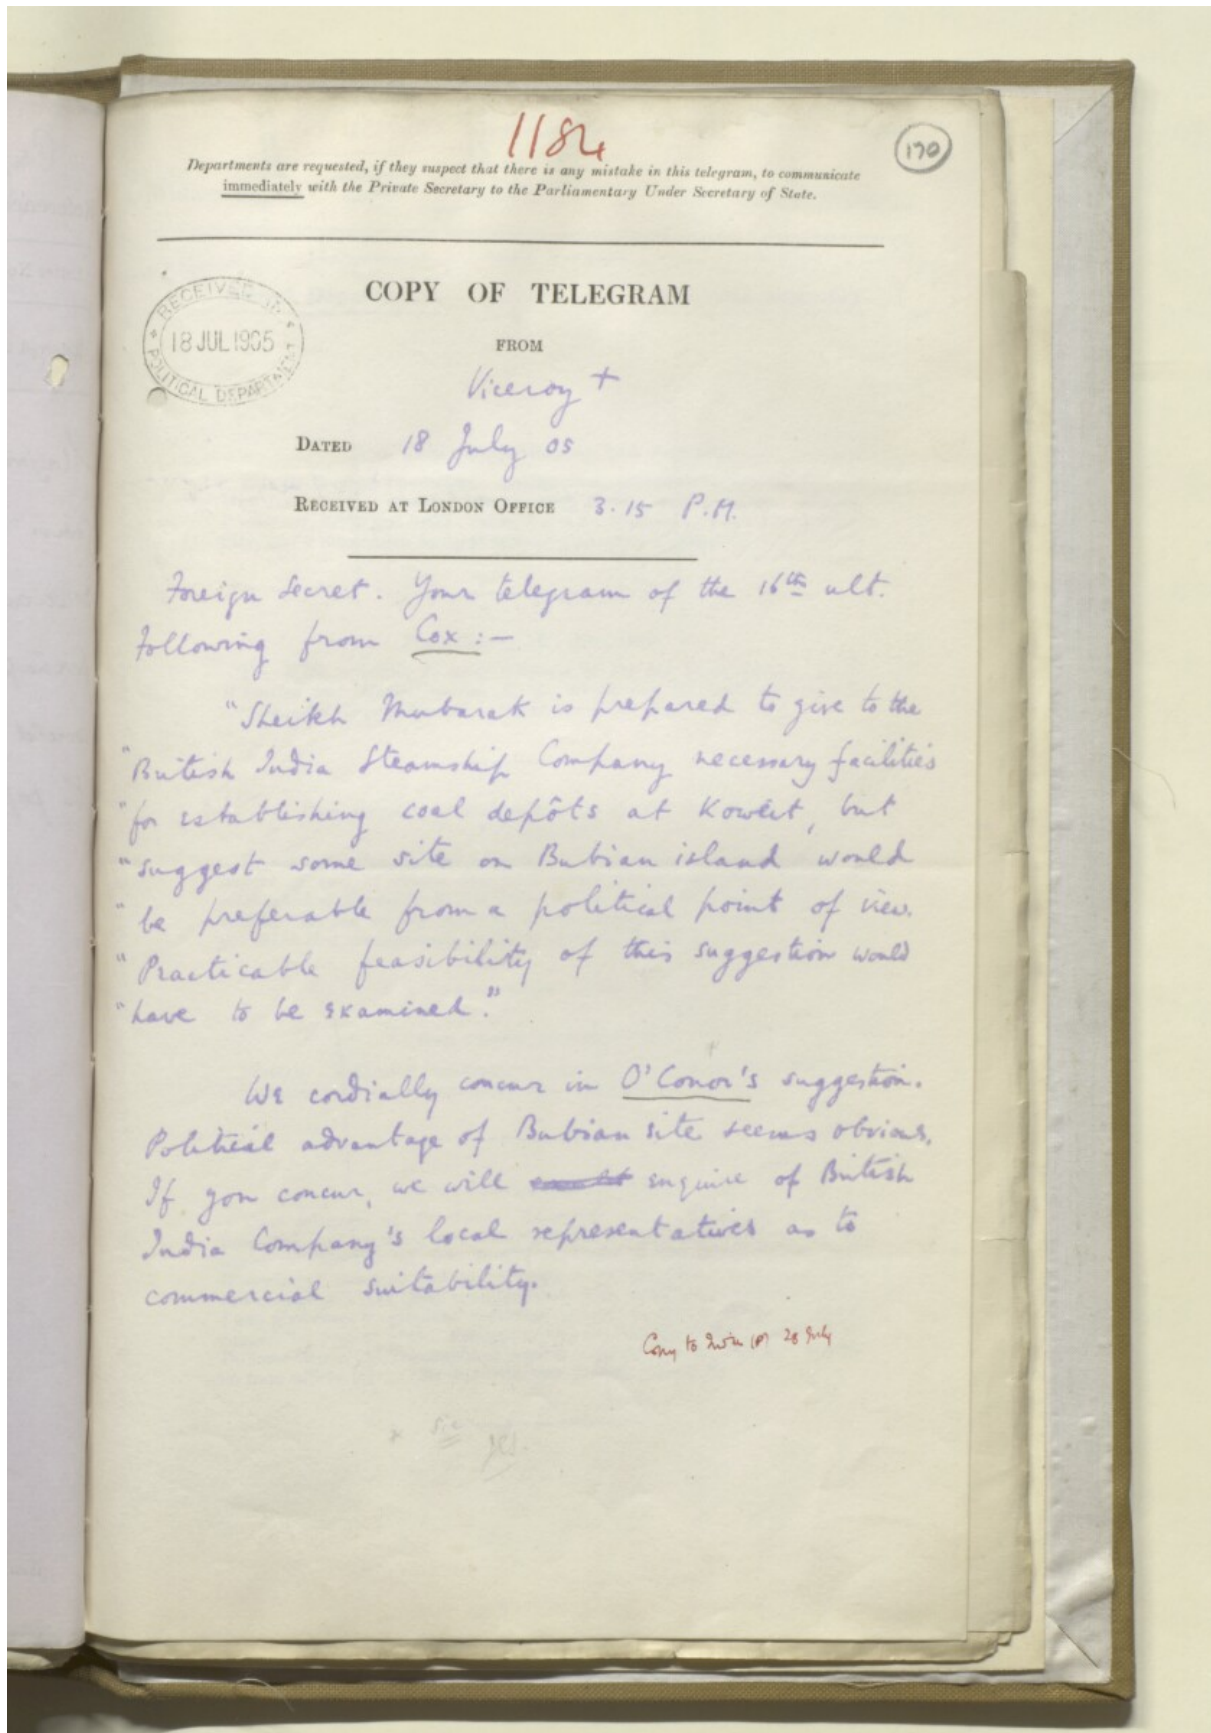 1184
170
Departments are requested, if they suspect that there is any mistake in this telegram, to communicate
immediately with the Private Secretary to the Parliamentary Under Secretary of State.
RECEIVED IN
18 JUL 1905
POLITICAL DEPARTMENT
COPY OF TELEGRAM
FROM
Viceroy +
DATED 18 July 05
RECEIVED AT LONDON OFFICE 3.15 P.M.
Foreign Secret. Your telegram of the 16th ult.
Following from Cox :-
"Sheikh Mubarak is prepared to give to the
"British India Steamship Company necessary facilities
"for establishing coal depôts at Koweit, but
"suggest some site on Bubian island would
"be preferable from a political point of view.
"Practicable feasibility of this suggestion would
"have to be examined."
We cordially concur in O'Conor's suggestion.
Political advantage of Bubian site seems obvious.
If you concur, we will enquire of British
India Company's local representatives as to
commercial suitability.
Copy to India 28 July
* sic